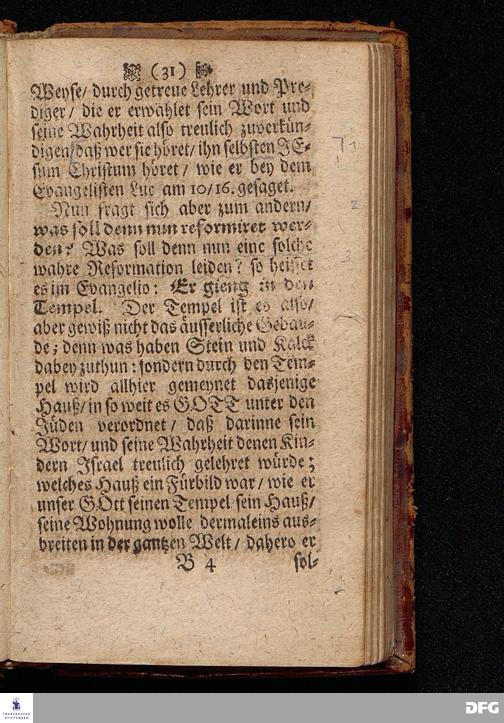 (31)
Weyse/ durch getreue Lehrer und Pre-
diger/ die er erwählet sein Wort und
seine Wahrheit also treulich zuverkün-
digen/daß wer sie höret/ ihn selbsten JE-
sum Christum höret/ wie er bey dem
Evangelisten Luc am 10/16. gesaget.
Nun fragt sich aber zum andern/
was soll denn nun reformiret wer-
den? Was soll denn nun eine solche
wahre Reformation leiden? so heisset
es im Evangelio: Er gieng in den
Tempel. Der Tempel ist es also/
aber gewiß nicht das äusserliche Gebäu-
de; denn was haben Stein und Kalck
dabey zuthun: sondern durch den Tem-
pel wird allhier gemeynet dasjenige
Hauß/ in so weit es GOTT unter den
Jüden verordnet/ daß darinne sein
Wort/ und seine Wahrheit denen Kin-
dern Israel treulich gelehret würde;
welches Hauß ein Fürbild war/ wie er
unser GOtt seinen Tempel sein Hauß/
seine Wohnung wolle dermaleins aus-
breiten in der gantzen Welt/ dahero er
B 4 sol-
FRANCKESCHE
STIFTUNGEN
DFG